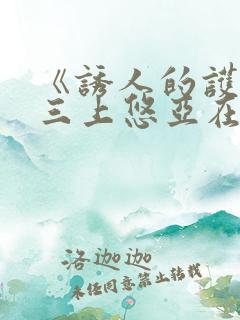 《誘人的護
三上悠亞在
洛迦迦
未经同意禁止转载